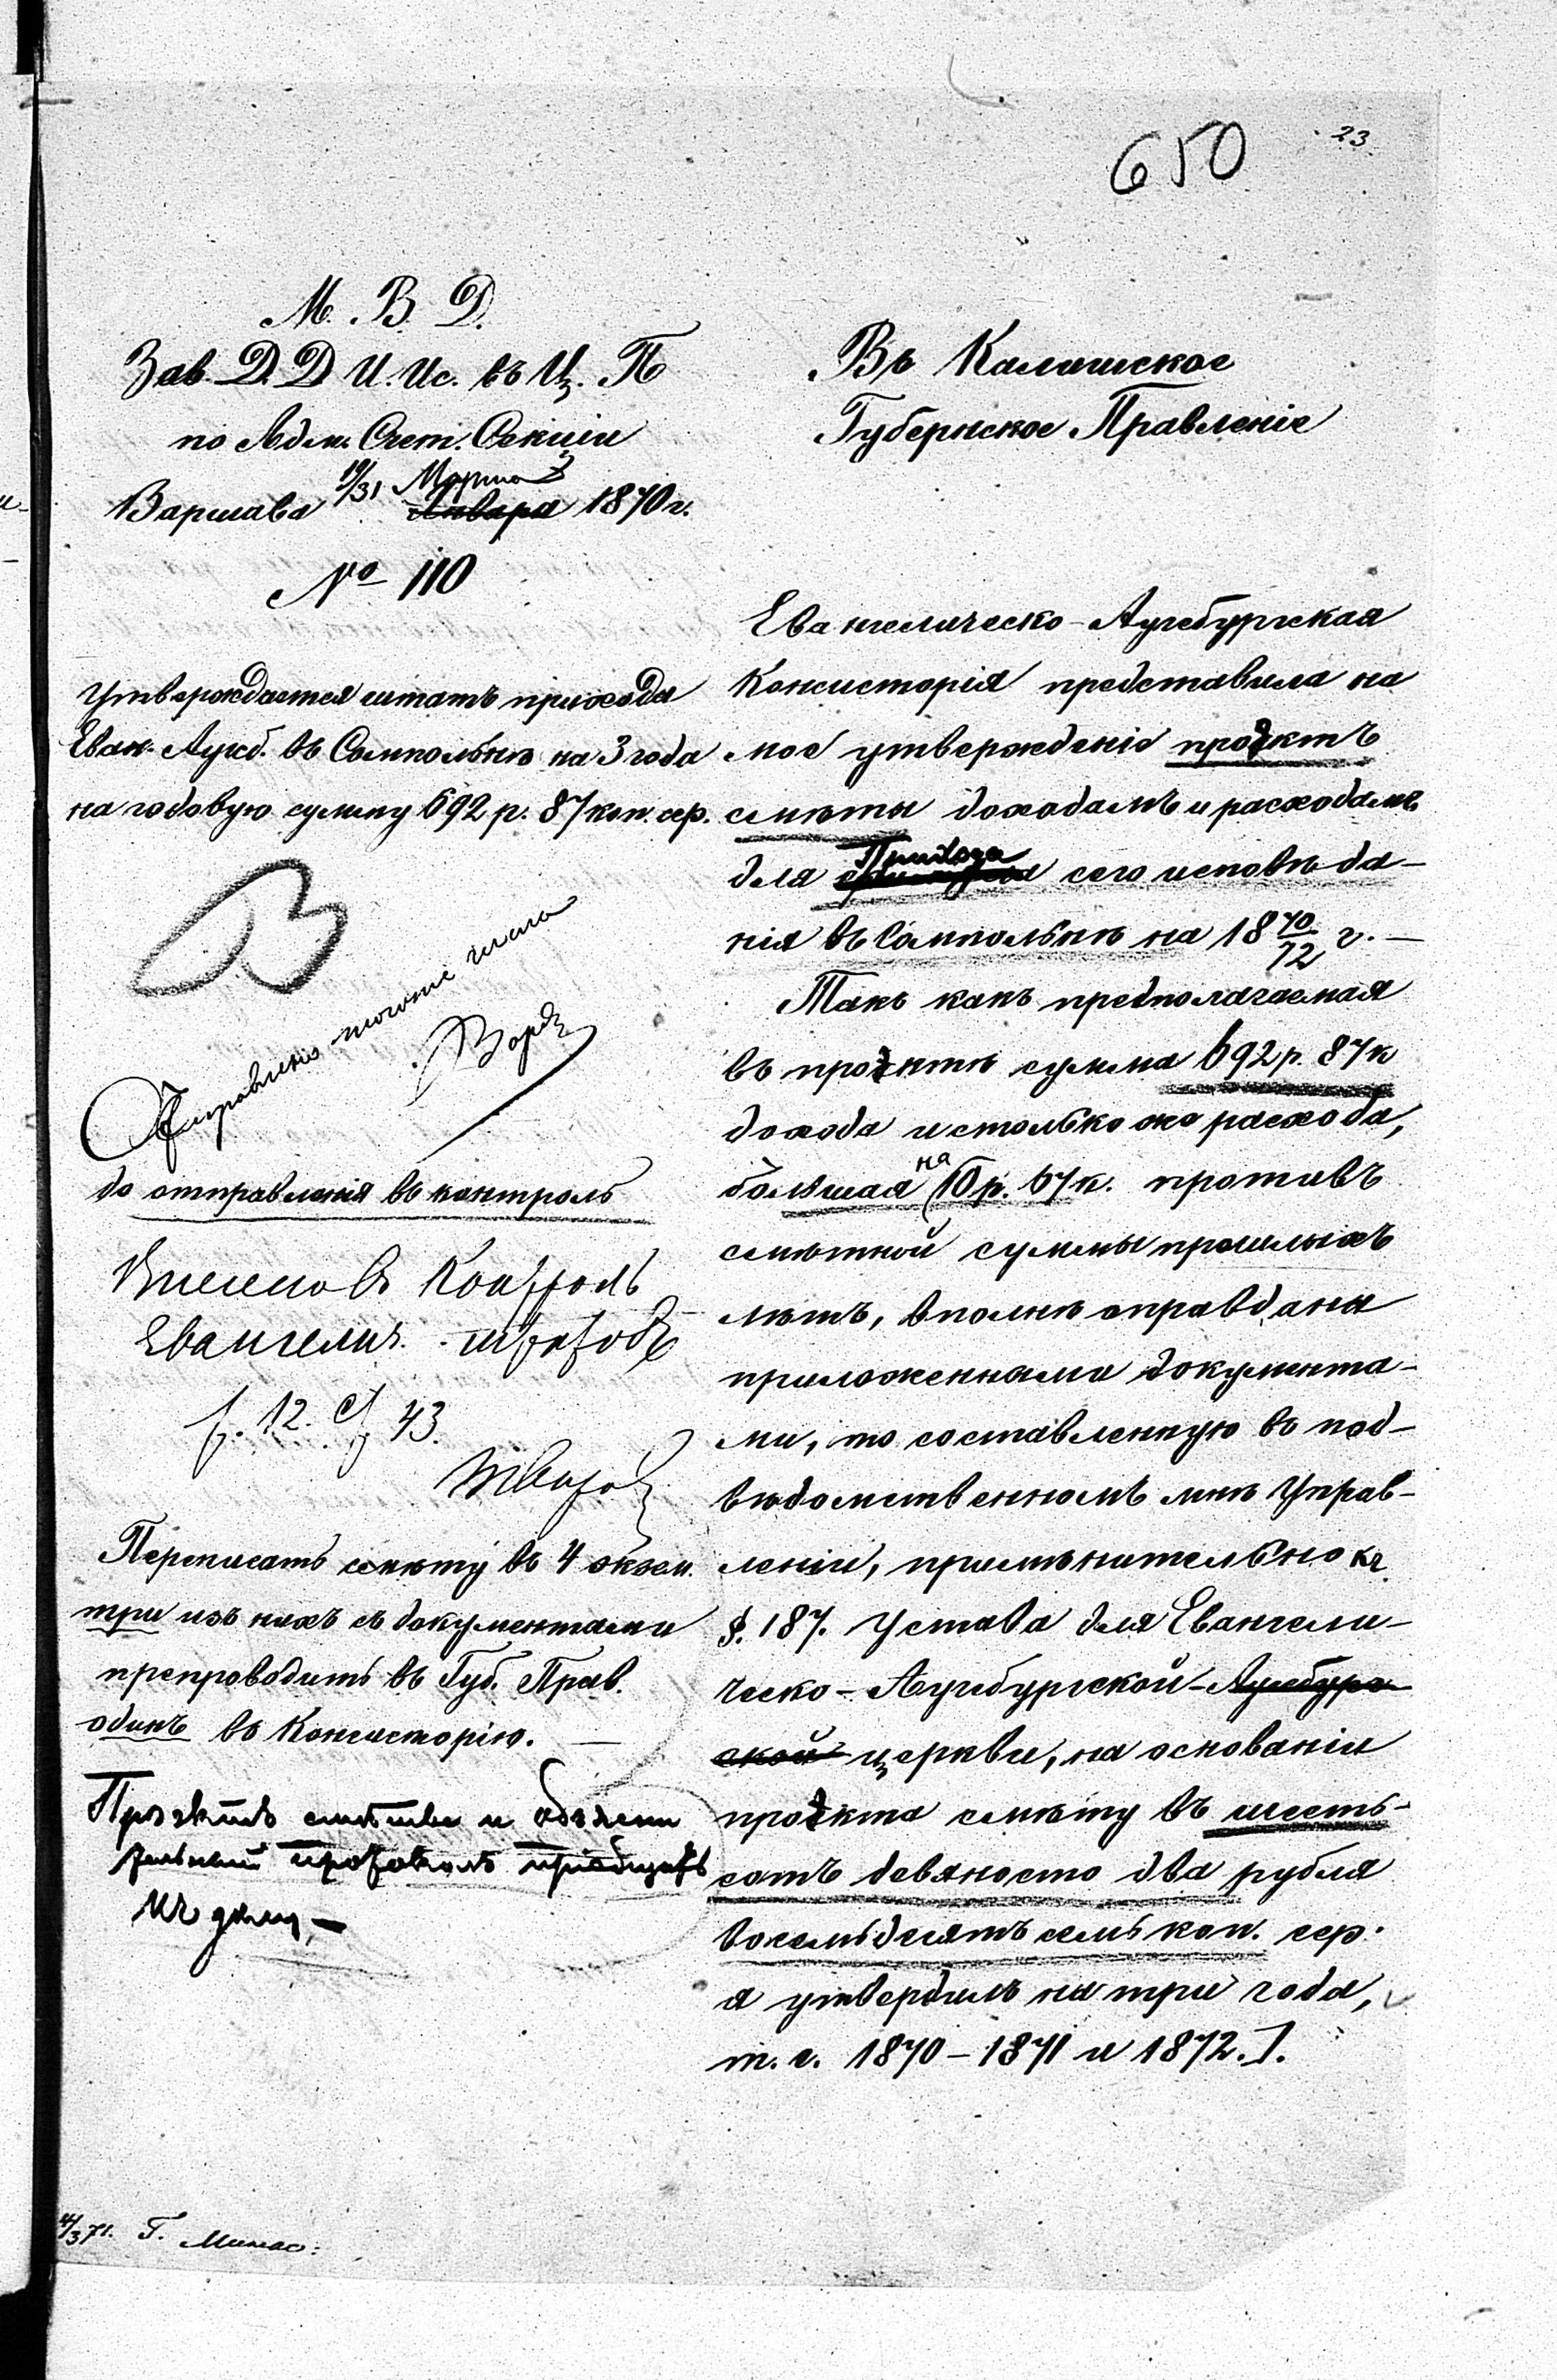 650
23
М. В. Д.
Зав. Д. Д. И. Ис. въ Ц. П
по Адм. Счет. Секціи
Варшава 19/31 Марта Января 1870 г.
№ 110
Утверждается штатъ прихода
Еван. Аугсб. въ Сомпольнѣ на 3 года
на годовую сумму 692 р. 87 коп. сер.
до отправленія въ контроль
Внесено въ Контроль
Евангелич. штатовъ
f. 12. 43.
Переписать смѣту въ 4 экзем.
три изъ нихъ съ документами
препроводить въ Губ. Прав.
одинъ въ Консисторію.
Проэктъ смѣты и
протоколъ пріобщить
къ дѣлу
Въ Калишское
Губернское Правленіе
Евангелическо-Аугсбургская
Консисторія представила на
мое утвержденіе проэктъ
смѣты доходамъ и расходамъ
для Прихода сего исповѣда-
нія въ Сомпольнѣ на 1870/72 г. —
Такъ какъ предполагаемая
въ проэктѣ сумма 692 р. 87 к
дохода и столько же расхода,
большая на 10 р. 67 к. противъ
смѣтной суммы прошлыхъ
лѣтъ, вполнѣ оправдана
приложенными документа-
ми, то составленную въ под-
вѣдомственномъ мнѣ Управ-
леніи, примѣнительно къ
§. 187. Устава для Евангели-
ческо-Аугсбургской-Аугсбург
ской церкви, на основаніи
проэкта смѣту въ шесть-
сотъ девяносто два рубля
восемьдесятъ семь коп. сер.
я утвердилъ на три года,
т. е. 1870 – 1871 и 1872.